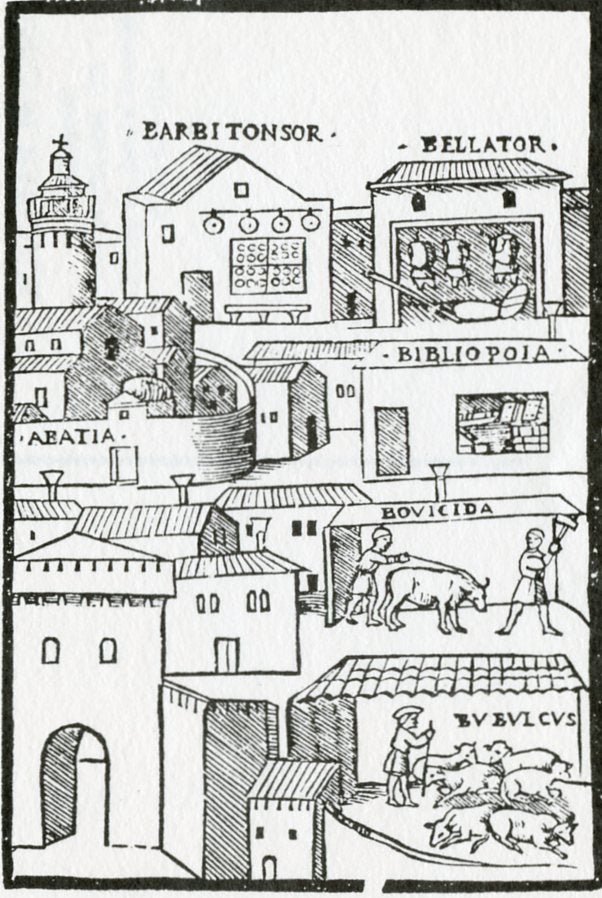 BARBITONSOR·
· BELLATOR·
· BIBLIOPOLA ·
· ABATIA ·
BOVICIDA
BVBVLCVS